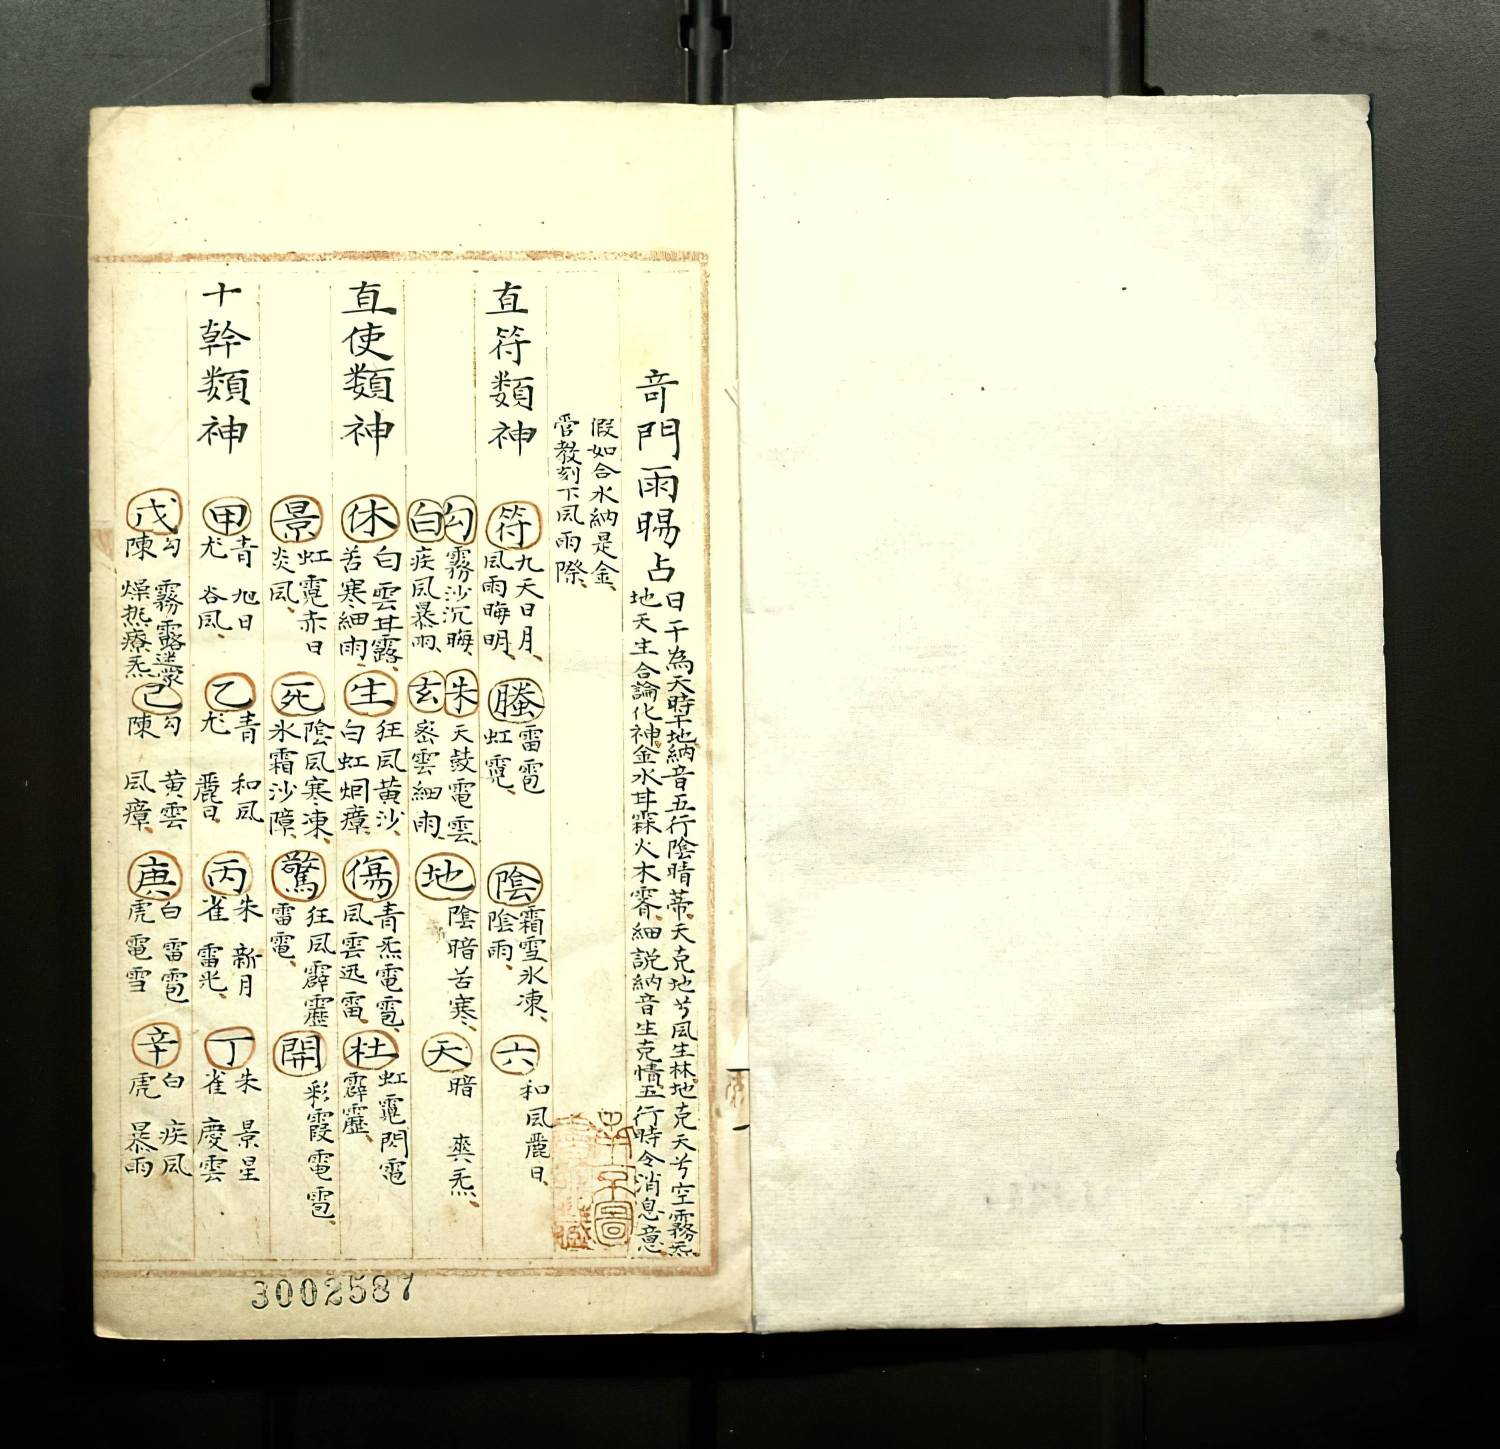 奇門雨暘占
日干為天時干地納音五行陰晴蒂天克地兮風生林地克天兮空霧炁
地天主合論化神金水甘霖火木霽細說納音生克情五行時令消息意
假如合水納是金
管教刻下風雨際
直符類神
符 九天日月風雨晦明
螣 雷雹虹霓
陰 霜雪氷凍陰雨
六 和風麗日
勾 霧沙沉晦
白 疾風暴雨
朱 天鼓電雲
玄 密雲細雨
地 陰暗苦寒
天 暗爽炁
直使類神
休 白雲甘露苦寒細雨
生 狂風黃沙白虹烟瘴
傷 青炁電雹風雲迅雷
杜 虹霓閃電霹靂
景 虹霓赤日炎風
死 陰風寒凍氷霜沙障
驚 狂風霹靂雷電
開 彩霞電雹
十幹類神
甲 青尤 旭日谷風
乙 青尤 和風麗日
丙 朱雀 新月雷光
丁 朱雀 景星慶雲
戊 勾陳 霧露迷蒙燥热療炁
己 勾陳 黃雲風瘴
庚 白虎 雷雹電雪
辛 白虎 疾風暴雨
3002587